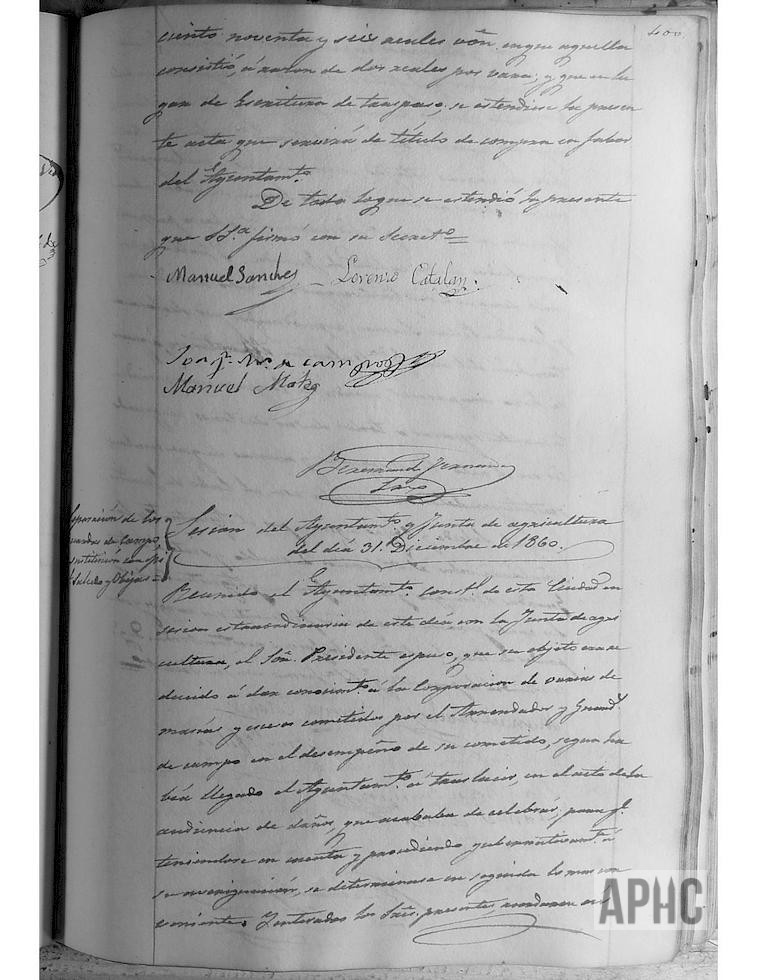 400.
ciento noventa y seis reales vón. en que aquella
consistió, á razon de dos reales por vara; y que en lu
gar de Escritura de traspaso, se estendiese la presen
te acta que servirá de título de compra en fabor
del Ayuntamto.
De todo lo que se estendió la presente
que S.S.a firmó con su Secreto.=
Manuel Sanchez Lorenzo Catalan.
Manuel Mateo
separación de los
guardas de campo
Sesion del Ayuntamto. y Junta de agricultura
del dia 31 Diciembre de 1860.
Reunido el Ayuntamto. constl. de esta Ciudad en
sesion estraordinaria de este dia con la Junta de agri
cultura, el Señor Presidente espuso, que su objeto era re
ducido á dar conocimto. á la Corporacion de varias de
masías y escesos cometidos por el Arrendador y Guards.
de campo en el desempeño de su cometido, segun ha
bia llegado el Ayuntamto. á traslucir, en el acto de la
audiencia de daños, que acababa de celebrar, para q.
teniendose en cuenta y procediendo gubernativamte. á
su averiguación, se determinase en seguida lo mas con
veniente. Enterados los Sres. presentes, acordaron
APHC